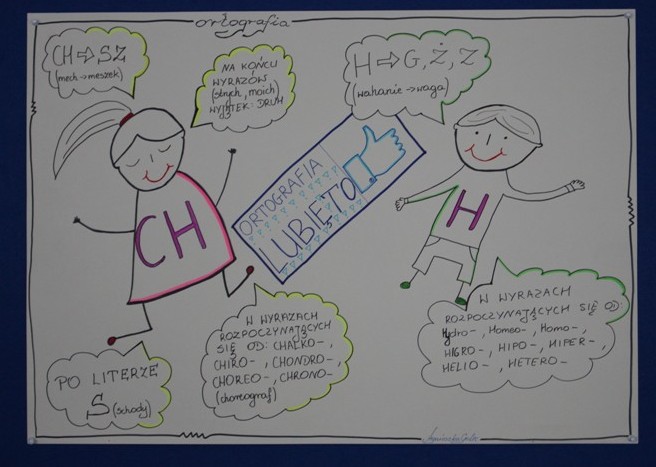 ortografia
CH ⇒ SZ
(mech → meszek)
NA KOŃCU
WYRAZÓW
(silnych, moich)
WYJĄTEK: DRUH
H ⇒ G, Ż, Z
(wahanie → waga)
ORTOGRAFIA
LUBIĘ TO
CH
H
PO LITERZE
S (schody)
W WYRAZACH
ROZPOCZYNAJĄCYCH
SIĘ OD: CHALKO-,
CHIRO-, CHONDRO-,
CHOREO-, CHRONO-
(choreograf)
W WYRAZACH
ROZPOCZYNAJĄCYCH SIĘ OD:
Hydro-, Homeo-, Homo-,
HIGRO-, HIPO-, HIPER-,
HELIO-, HETERO-